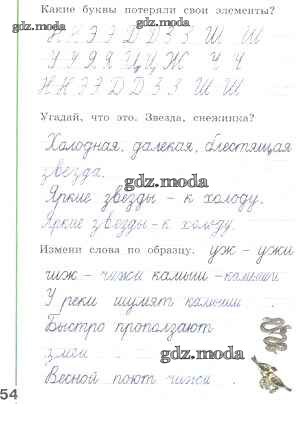 Какие буквы потеряли свои элементы?
gdz.moda
Н Н Э Э D D З З Ш Ш
У Ч Я Я Ц Ц Ж Ч Ч
Н Н Э Э D D З З Ш Ш
Угадай, что это. Звезда, снежинка?
Холодная, далекая, блестящая
звезда.
gdz.moda
Яркие звезды – к холоду.
Яркие звезды – к холоду.
Измени слова по образцу. уж – ужи
чиж – чижи камыш – камыши
У реки шумят камыши
Быстро проползают
змеи
gdz.moda
Весной поют чижи.
54
gdz.moda